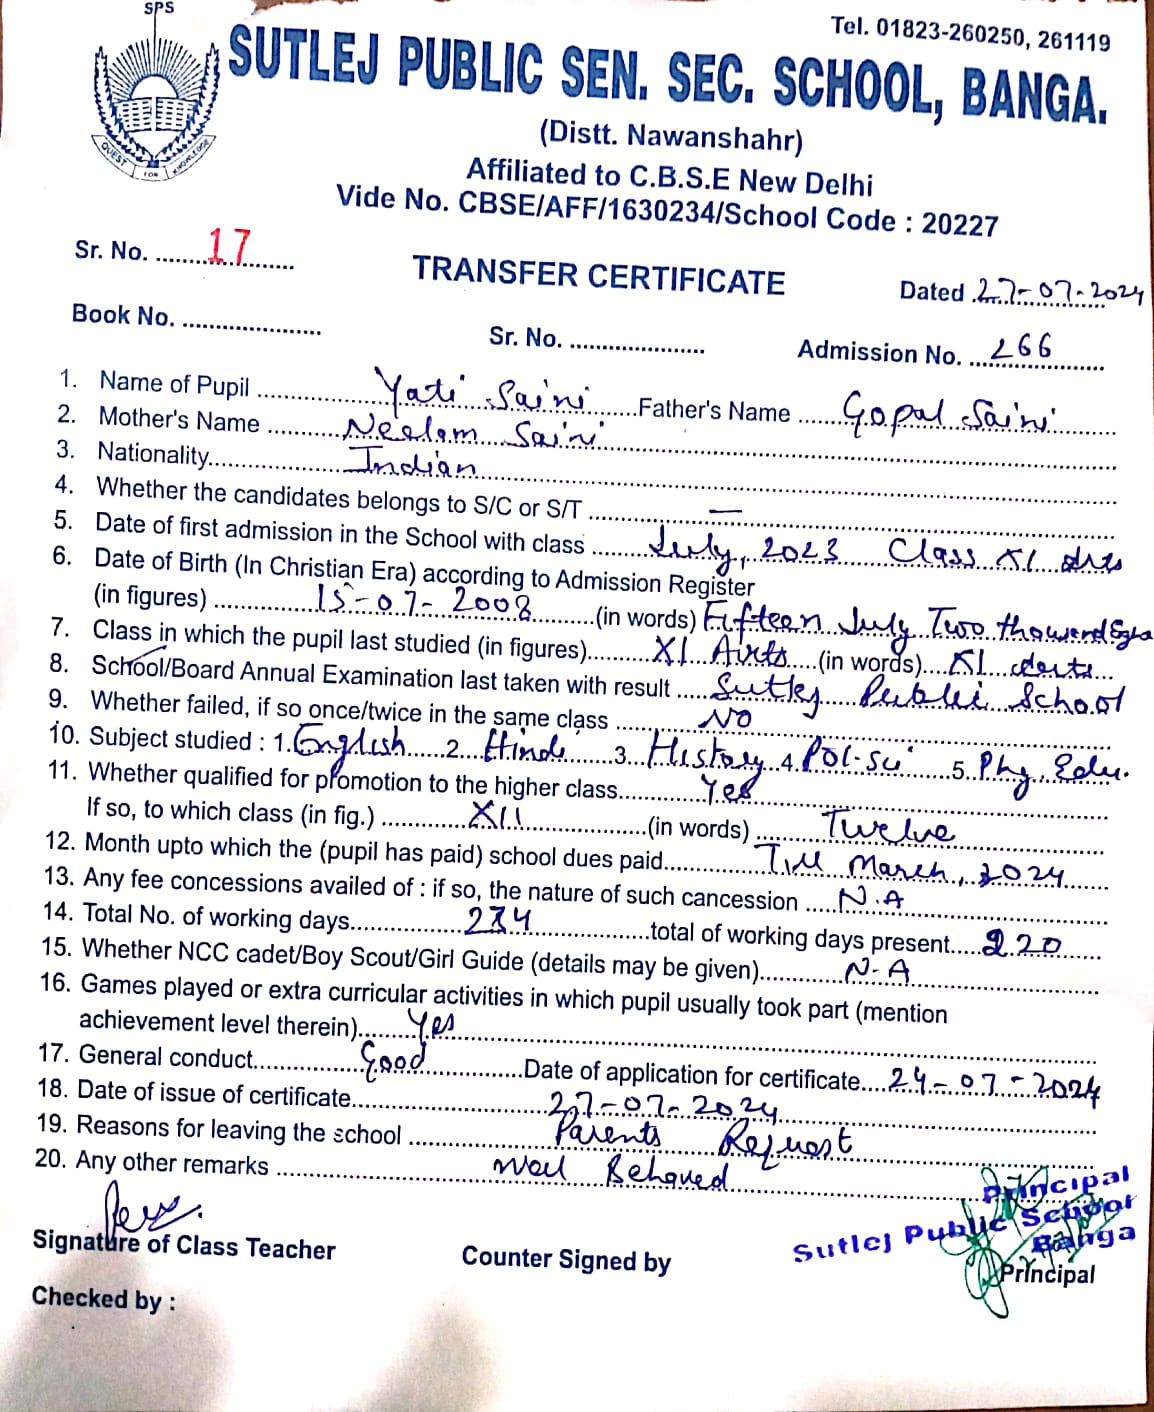 SPS
Tel. 01823-260250, 261119
SUTLEJ PUBLIC SEN. SEC. SCHOOL, BANGA.
QUEST FOR KNOWLEDGE
(Distt. Nawanshahr)
Affiliated to C.B.S.E New Delhi
Vide No. CBSE/AFF/1630234/School Code : 20227
Sr. No. ...17...
TRANSFER CERTIFICATE
Dated 27-07-2024
Book No. ....................
Sr. No. ....................
Admission No. ...266...
1. Name of Pupil ... Yati Saini ...Father's Name ... Gopal Saini
2. Mother's Name ... Neelam Saini
3. Nationality... Indian
4. Whether the candidates belongs to S/C or S/T ... —
5. Date of first admission in the School with class ... July, 2023 Class XI Arts
6. Date of Birth (In Christian Era) according to Admission Register
(in figures) ... 15-07-2008 ...(in words) Fifteen July Two thousand
7. Class in which the pupil last studied (in figures)... XI Arts ...(in words)... XI Arts
8. School/Board Annual Examination last taken with result ... Sutlej Public School
9. Whether failed, if so once/twice in the same class ... NO
10. Subject studied : 1. English 2. Hindi 3. History 4. Pol-Sci 5. Phy. Edu.
11. Whether qualified for promotion to the higher class... Yes
If so, to which class (in fig.) ... XII ...(in words) ... Twelve
12. Month upto which the (pupil has paid) school dues paid... Till March, 2024
13. Any fee concessions availed of : if so, the nature of such cancession ... N.A
14. Total No. of working days... 234 ...total of working days present... 220
15. Whether NCC cadet/Boy Scout/Girl Guide (details may be given)... N-A
16. Games played or extra curricular activities in which pupil usually took part (mention
achievement level therein)... Yes
17. General conduct... Good ...Date of application for certificate... 24-07-2024
18. Date of issue of certificate... 27-07-2024
19. Reasons for leaving the school ... Parents Request
20. Any other remarks ... Well Behaved
Principal
Sutlej Public School
Banga
Signature of Class Teacher
Counter Signed by
Principal
Checked by :